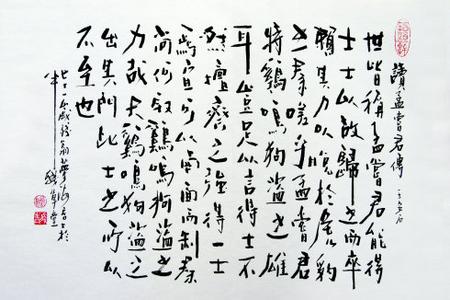 讀孟嘗君傳
世皆稱孟嘗君能得
士士以故歸之而卒
賴其力以脫於虎豹
之秦嗟乎孟嘗君
特雞鳴狗盜之雄
耳豈足以言得士不
然擅齊之強得一士
焉宜可以南面而制秦
尚何取雞鳴狗盜之
力哉夫雞鳴狗盜之
出其門此士之所以
不至也